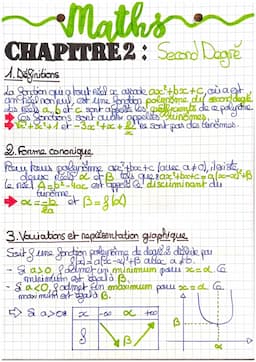 Maths
CHAPITRE 2 : Second Degré
1. Définitions
La fonction qui à tout réel x associe ax²+bx+c, où a est
un réel non nul, est une fonction polynôme du second degré.
Les réels a, b et c sont appelés les coefficients de ce polynôme.
→ Ces fonctions sont aussi appelées trinômes.
ne sont pas des trinômes.
2. Forme canonique
Pour tous polynôme ax²+bx+c (avec a≠0), il existe
deux réels α et β tels que ax²+bx+c = a(x-α)²+β
Le réel Δ=b²-4ac est appelé discriminant du
trinôme.
→ α = -b/2a et β = f(α)
3. Variations et représentation graphique
Soit f une fonction polynôme de degré 2 définie par
f(x) = a(x-α)²+β avec a≠0.
- Si a>0, f admet un minimum pour x=α. Ce
minimum est égal à β.
- Si a<0, f admet un maximum pour x=α. Ce
maximum est égal à β.
→ Si a>0
x -∞ α +∞
f
β
β
α